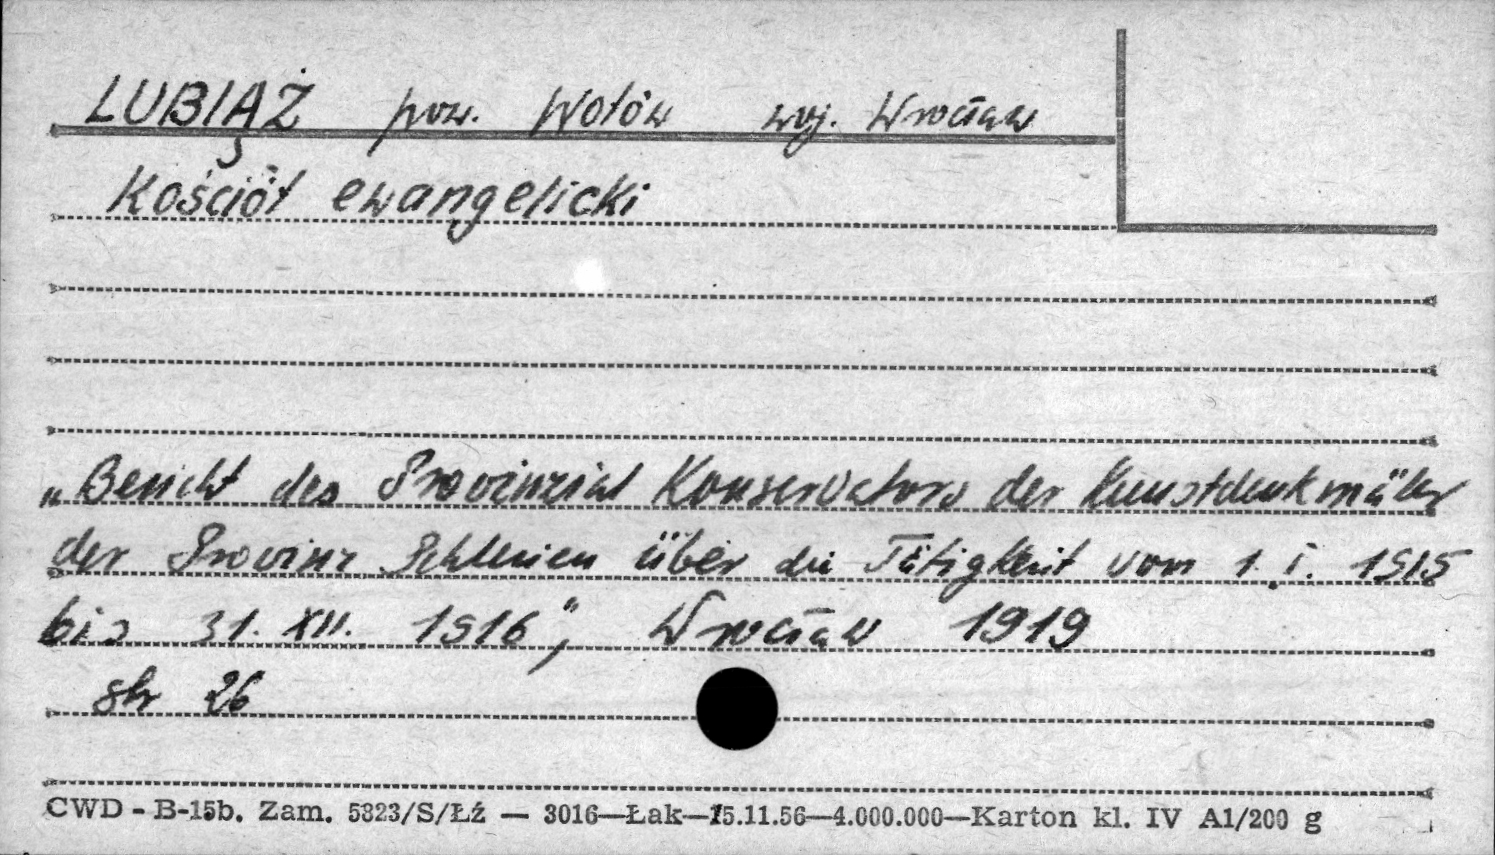 LUBIĄŻ pow. Wołów woj. Wrocław
Kościół ewangelicki
„Bericht des Provinzial Konservators der Kunstdenkmäler
der Provinz Schlesien über die Tätigkeit vom 1. I. 1915
bis 31. XII. 1916", Wrocław 1919
str 26
CWD - B-15b. Zam. 5323/S/Łź — 3016—Łak—15.11.56—4.000.000—Karton kl. IV A1/200 g